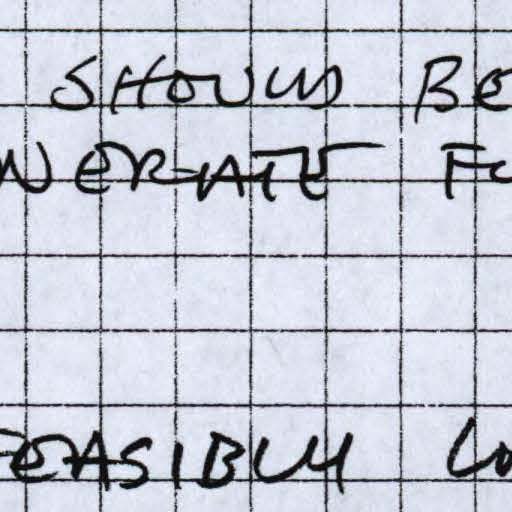 SHOULD BE
NERATE FO
FEASIBLY